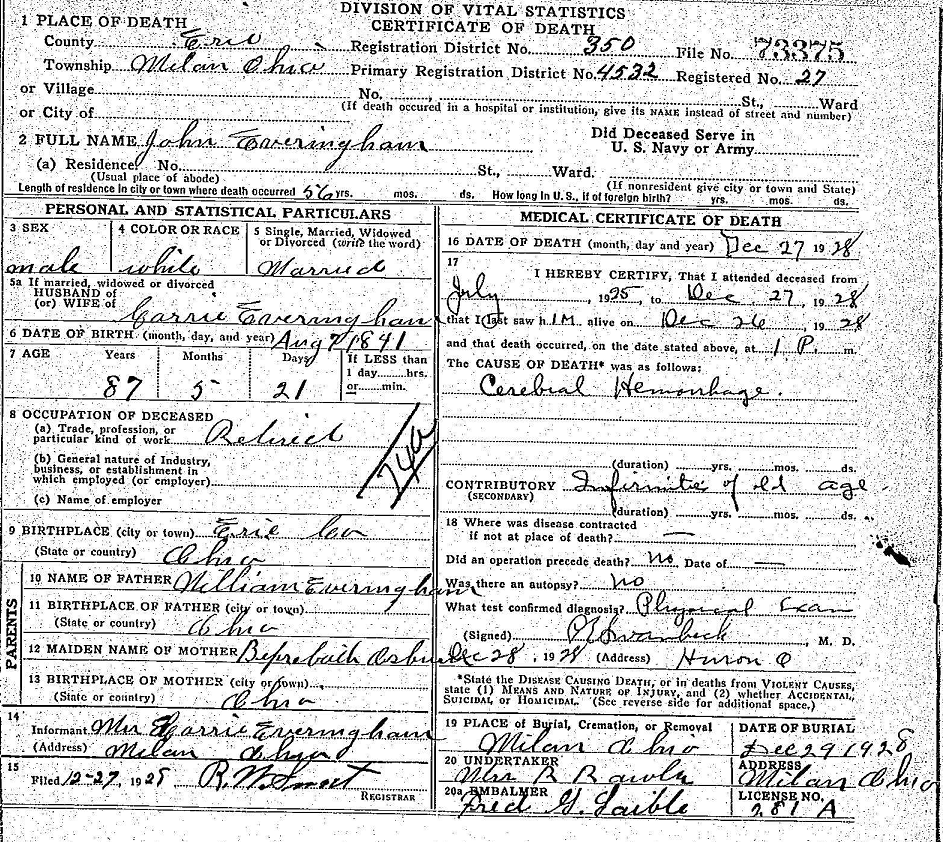 DIVISION OF VITAL STATISTICS
CERTIFICATE OF DEATH
1 PLACE OF DEATH
County Erie Registration District No. 350 File No. 73375
Township Milan Ohio Primary Registration District No. 4532 Registered No. 27
or Village No. St., Ward
(If death occured in a hospital or institution, give its NAME instead of street and number)
or City of
2 FULL NAME John Everingham Did Deceased Serve in
U. S. Navy or Army
(a) Residence No. St., Ward.
(Usual place of abode) (If nonresident give city or town and State)
Length of residence in city or town where death occurred 56 yrs. mos. ds. How long in U. S., if of foreign birth? yrs. mos. ds.
PERSONAL AND STATISTICAL PARTICULARS
3 SEX 4 COLOR OR RACE 5 Single, Married, Widowed
or Divorced (write the word)
male white Married
5a If married, widowed or divorced
HUSBAND of
(or) WIFE of Carrie Everingham
6 DATE OF BIRTH (month, day, and year) Aug 7 1841
7 AGE Years Months Days If LESS than
1 day hrs.
87 5 21 or min.
8 OCCUPATION OF DECEASED
(a) Trade, profession, or
particular kind of work Retired
(b) General nature of Industry,
business, or establishment in
which employed (or employer)
(c) Name of employer
74a
9 BIRTHPLACE (city or town) Erie Co
(State or country) Ohio
PARENTS
10 NAME OF FATHER William Everingham
11 BIRTHPLACE OF FATHER (city or town)
(State or country) Ohio
12 MAIDEN NAME OF MOTHER
13 BIRTHPLACE OF MOTHER (city or town)
(State or country) Ohio
14
Informant Mrs Carrie Everingham
(Address) Milan Ohio
15
Filed 12-27, 1928 R. W. Smoot
REGISTRAR
MEDICAL CERTIFICATE OF DEATH
16 DATE OF DEATH (month, day and year) Dec 27 1928
17
I HEREBY CERTIFY, That I attended deceased from
July , 1925, to Dec. 27, 1928
that I last saw h IM alive on Dec 26, 1928
and that death occurred, on the date stated above, at 1 P. m.
The CAUSE OF DEATH* was as follows:
Cerebial Hemorrhage.
(duration) yrs. mos. ds.
CONTRIBUTORY Infirmities of old age.
(SECONDARY)
(duration) yrs. mos. ds.
18 Where was disease contracted
if not at place of death? —
Did an operation precede death? No Date of —
Was there an autopsy? No
What test confirmed diagnosis? Physical Exam
(Signed) , M. D.
Dec 28, 1928 (Address) Huron O
*State the DISEASE CAUSING DEATH, or in deaths from VIOLENT CAUSES,
state (1) MEANS AND NATURE OF INJURY, and (2) whether ACCIDENTAL,
SUICIDAL or HOMICIDAL. (See reverse side for additional space.)
19 PLACE of Burial, Cremation, or Removal DATE OF BURIAL
Milan Ohio Dec 29 1928
20 UNDERTAKER ADDRESS
Mrs B Rawle Milan Ohio
20a EMBALMER LICENSE NO.
Fred G. Laible 281 A